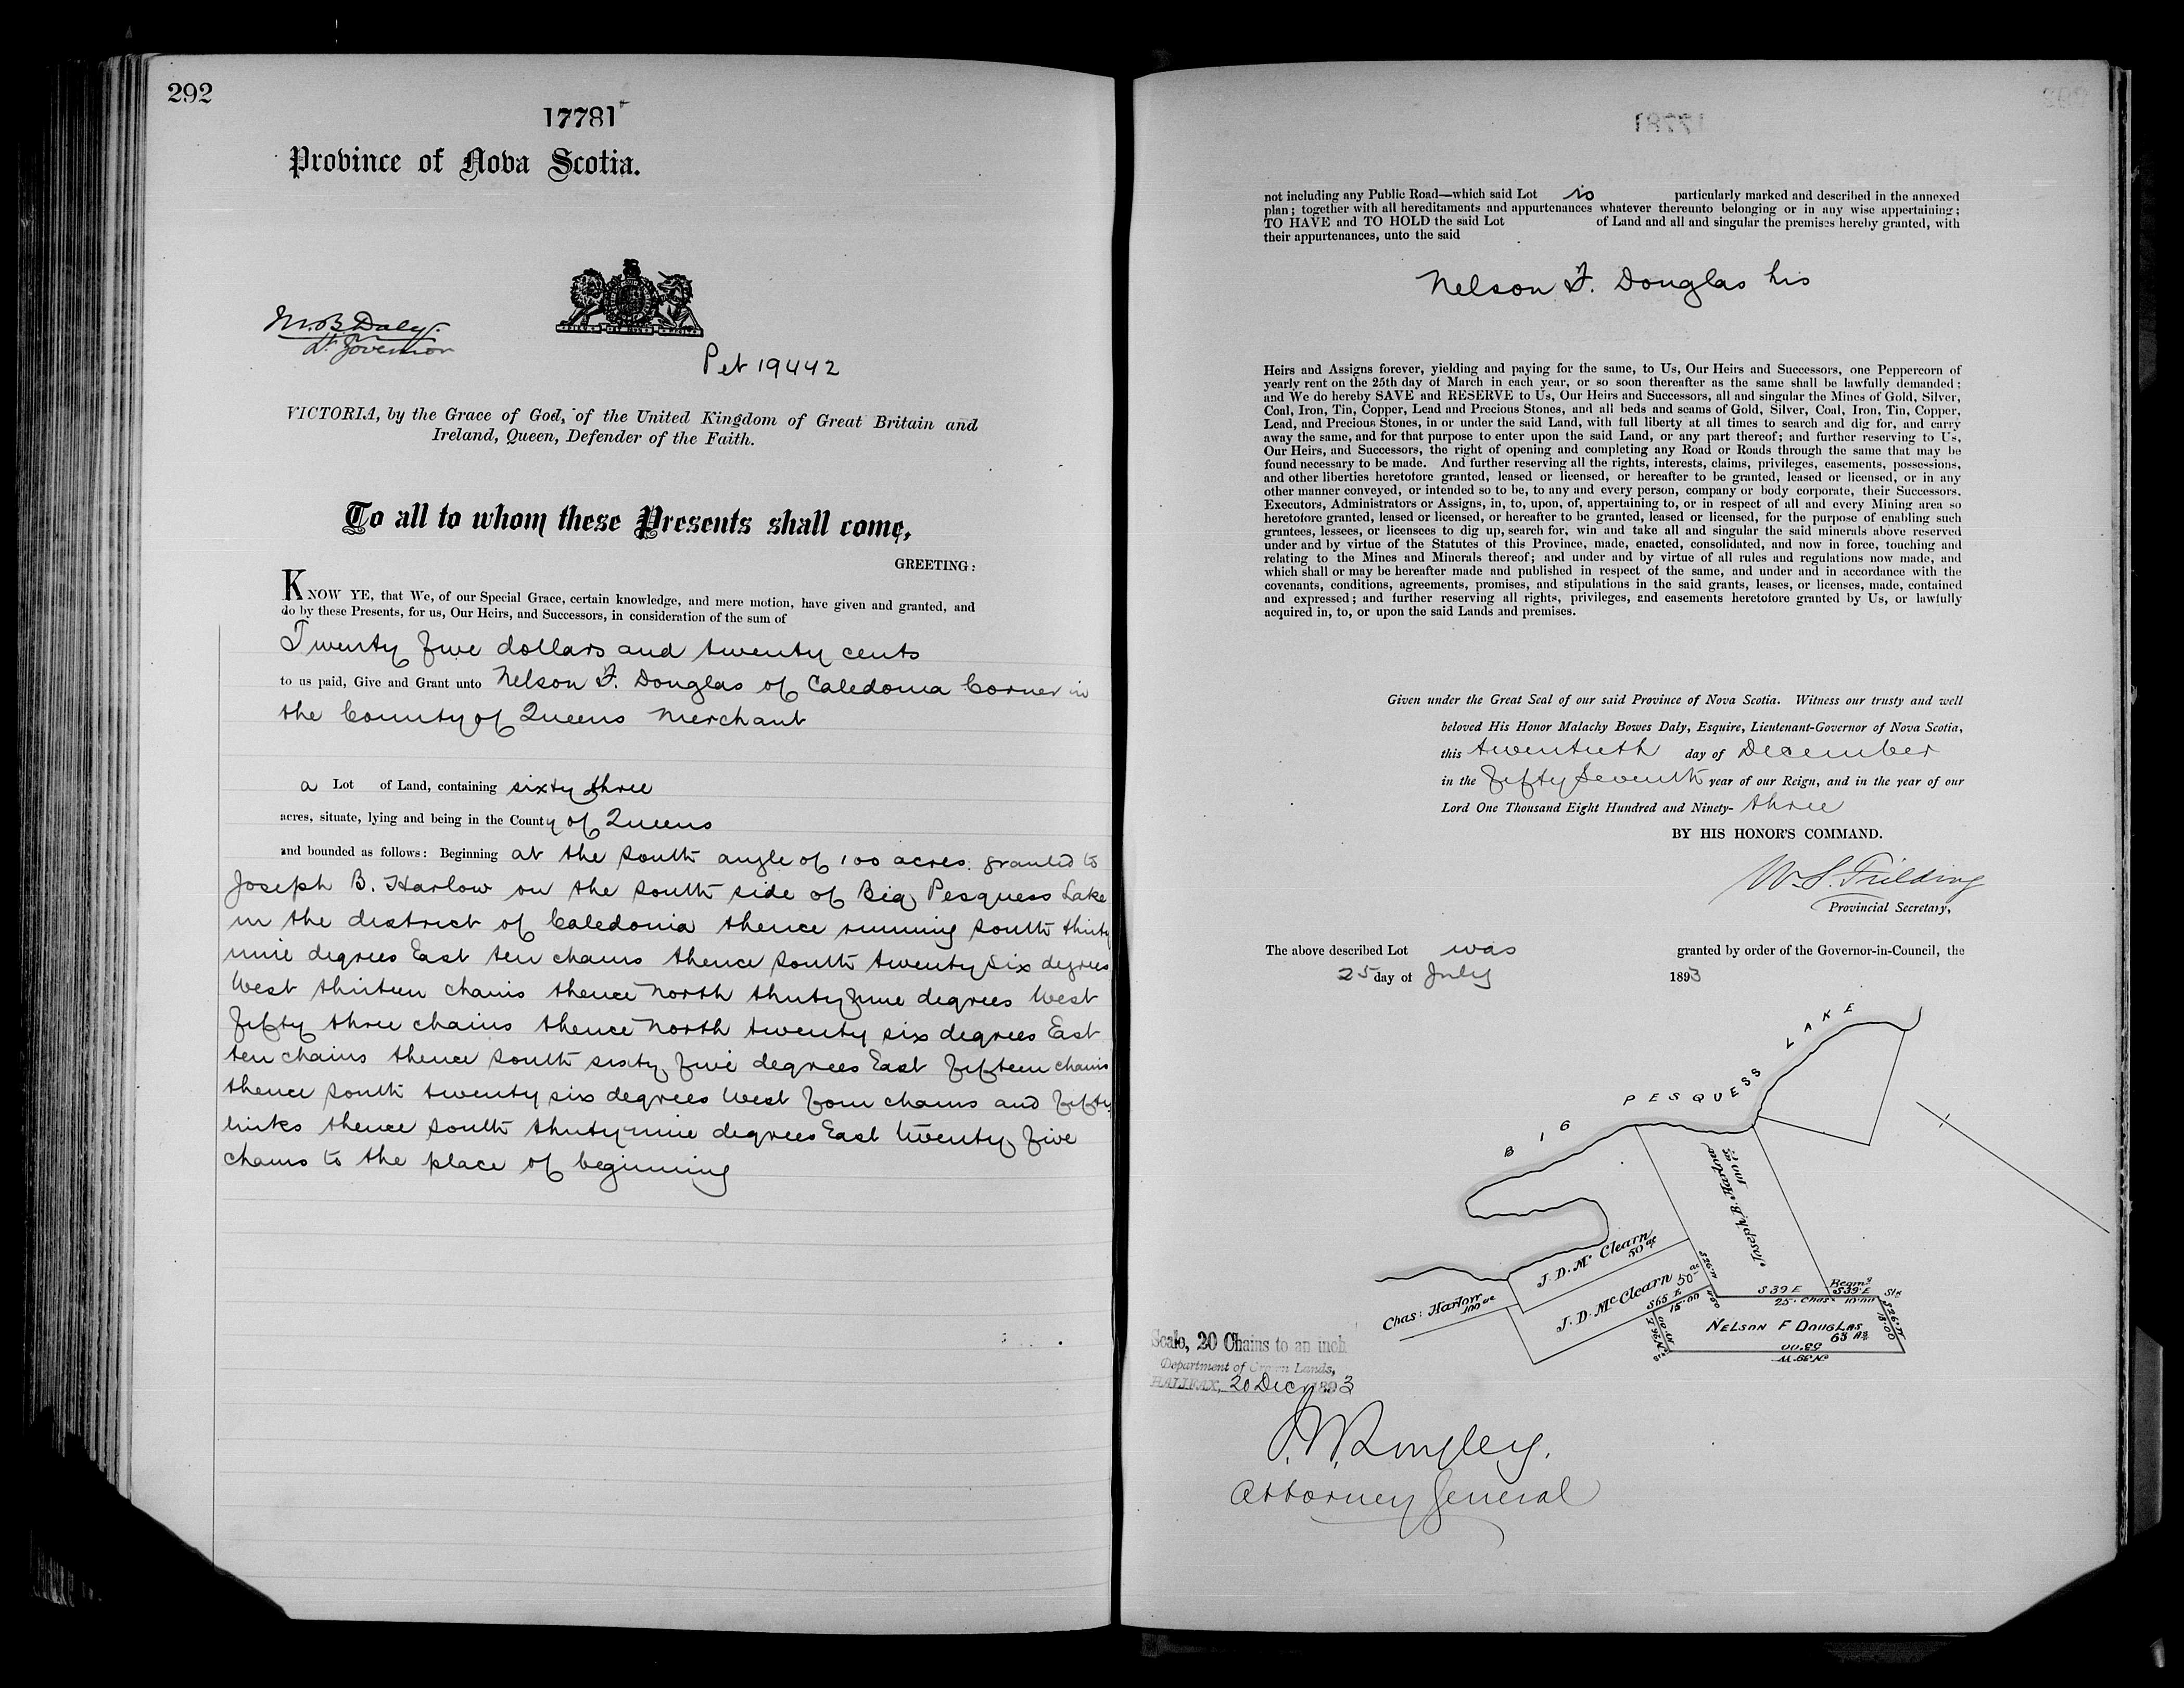 292
17781
Province of Nova Scotia.
M. B. Daly.
Lt. Governor
Pet 19442
VICTORIA, by the Grace of God, of the United Kingdom of Great Britain and
Ireland, Queen, Defender of the Faith.
To all to whom these Presents shall come,
GREETING:
KNOW YE, that We, of our Special Grace, certain knowledge, and mere motion, have given and granted, and
do by these Presents, for us, Our Heirs, and Successors, in consideration of the sum of
Twenty five dollars and twenty cents
to us paid, Give and Grant unto Nelson F. Douglas of Caledonia Corner in
the County of Queens Merchant
a Lot of Land, containing sixty three
acres, situate, lying and being in the County of Queens
and bounded as follows: Beginning at the south angle of 100 acres granted to
Joseph B. Harlow on the south side of Big Pesquess Lake
in the district of Caledonia thence running south thirty
nine degrees East ten chains thence south twenty six degrees
West thirteen chains thence North thirty nine degrees West
fifty three chains thence North twenty six degrees East
ten chains thence south sixty five degrees East fifteen chains
thence south twenty six degrees West four chains and fifty
links thence south thirty nine degrees East twenty five
chains to the place of beginning
17781
not including any Public Road—which said Lot is particularly marked and described in the annexed
plan; together with all hereditaments and appurtenances whatever thereunto belonging or in any wise appertaining;
TO HAVE and TO HOLD the said Lot of Land and all and singular the premises hereby granted, with
their appurtenances, unto the said
Nelson F. Douglas his
Heirs and Assigns forever, yielding and paying for the same, to Us, Our Heirs and Successors, one Peppercorn of
yearly rent on the 25th day of March in each year, or so soon thereafter as the same shall be lawfully demanded;
and We do hereby SAVE and RESERVE to Us, Our Heirs and Successors, all and singular the Mines of Gold, Silver,
Coal, Iron, Tin, Copper, Lead and Precious Stones, and all beds and seams of Gold, Silver, Coal, Iron, Tin, Copper,
Lead, and Precious Stones, in or under the said Land, with full liberty at all times to search and dig for, and carry
away the same, and for that purpose to enter upon the said Land, or any part thereof; and further reserving to Us,
Our Heirs, and Successors, the right of opening and completing any Road or Roads through the same that may be
found necessary to be made. And further reserving all the rights, interests, claims, privileges, easements, possessions,
and other liberties heretofore granted, leased or licensed, or hereafter to be granted, leased or licensed, or in any
other manner conveyed, or intended so to be, to any and every person, company or body corporate, their Successors.
Executors, Administrators or Assigns, in, to, upon, of, appertaining to, or in respect of all and every Mining area so
heretofore granted, leased or licensed, or hereafter to be granted, leased or licensed, for the purpose of enabling such
grantees, lessees, or licensees to dig up, search for, win and take all and singular the said minerals above reserved
under and by virtue of the Statutes of this Province, made, enacted, consolidated, and now in force, touching and
relating to the Mines and Minerals thereof; and under and by virtue of all rules and regulations now made, and
which shall or may be hereafter made and published in respect of the same, and under and in accordance with the
covenants, conditions, agreements, promises, and stipulations in the said grants, leases, or licenses, made, contained
and expressed; and further reserving all rights, privileges, and easements heretofore granted by Us, or lawfully
acquired in, to, or upon the said Lands and premises.
Given under the Great Seal of our said Province of Nova Scotia. Witness our trusty and well
beloved His Honor Malachy Bowes Daly, Esquire, Lieutenant-Governor of Nova Scotia,
this twentieth day of December
in the fifty seventh year of our Reign, and in the year of our
Lord One Thousand Eight Hundred and Ninety- three
BY HIS HONOR'S COMMAND.
W. S. Fielding
Provincial Secretary,
The above described Lot was granted by order of the Governor-in-Council, the
25 day of July 1893
BIG PESQUESS LAKE
Joseph B. Harlow
100 ac
J. D. McClearn
50 ac
J. D. McClearn 50 ac
Chas: Harlow
100 ac
S26W
4.50
S65E
15.00
S39E
25. Chas
Begin.g
S39E
10.00
Stn
S26W
13.00
N26E
10.00
NELSON F DOUGLAS
63 As
53.00
N39W
Scale, 20 Chains to an inch
Department of Crown Lands,
HALIFAX, 20 Decr. 1893
J. W. Longley.
Attorney General